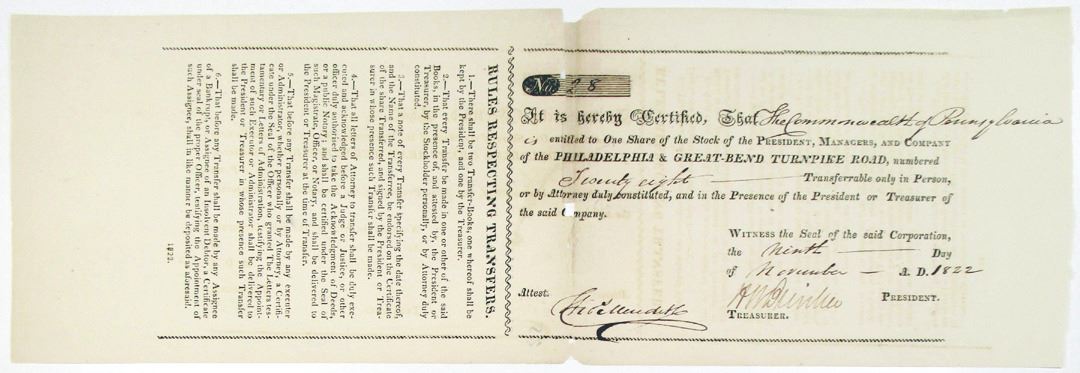 No. 28
It is hereby Certified, That The Commonwealth of Pennsylvania
is entitled to One Share of the Stock of the PRESIDENT, MANAGERS, AND COMPANY
of the PHILADELPHIA & GREAT-BEND TURNPIKE ROAD, numbered
Twenty eight Transferrable only in Person,
or by Attorney duly constituted, and in the Presence of the President or Treasurer of
the said Company.
WITNESS the Seal of the said Corporation,
the Ninth Day
of November A. D. 1822
PRESIDENT.
Attest.
Tho. Meredith
TREASURER.
RULES RESPECTING TRANSFERS.
1.—There shall be two Transfer-Books; one whereof shall be
kept by the President, and one by the Treasurer.
2.—That every Transfer be made in one or other of the said
Books, in the presence of, and attested by, the President or
Treasurer, by the Stockholder personally, or by Attorney duly
constituted.
3.—That a note of every Transfer specifying the date thereof,
and the Name of the Transferree, be endorsed on the Certificate
of the share Transferred, and signed by the President or Trea-
surer in whose presence such Transfer shall be made.
4.—That all letters of Attorney to transfer shall be duly exe-
cuted and acknowledged before a Judge or Justice, or other
officer duly authorised to take the Acknowledgment of Deeds,
or a public Notary; and shall be certified under the Seal of
such Magistrate, Officer, or Notary, and shall be delivered to
the President or Treasurer at the time of Transfer.
5.—That before any Transfer shall be made by any executer
or Administrator, whether personally or by Attorney, a Certifi-
cate under the Seal of the Officer who granted The Letters tes-
tamentary or Letters of Administration, testifying the Appoint-
ment of such Executor or Administrator shall be delivered to
the President or Treasurer in whose presence such Transfer
shall be made.
6.—That before any Transfer shall be made by any Assignee
of a Bankrupt, or Assignee of an Insolvent Debtor, a Certificate
under seal of the proper Officer, testifying the Appointment of
such Assignee, shall in like manner be deposited as aforesaid.
1822.